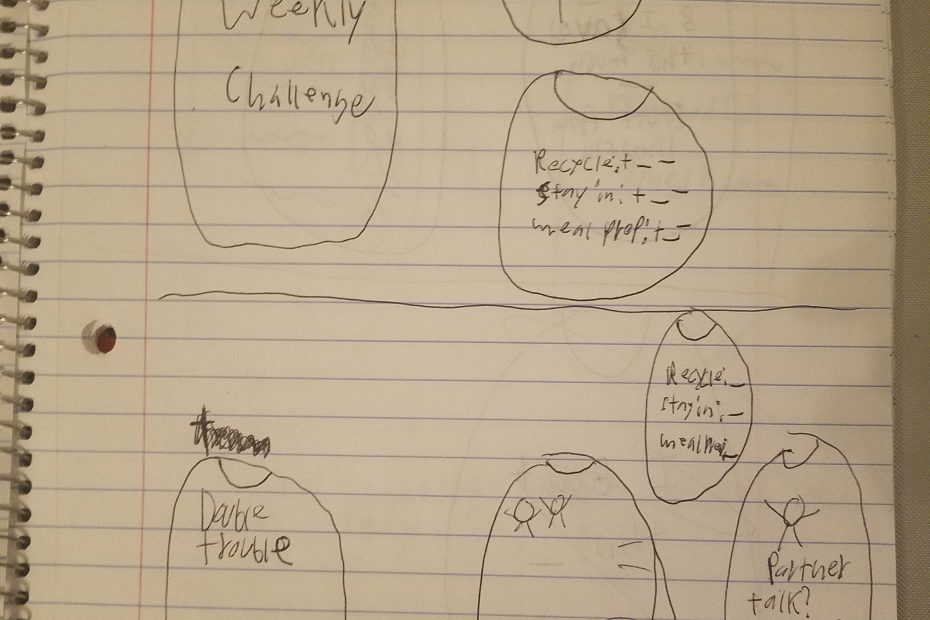 Weekly
Challenge
Recycle: + _ _
Stay in: + _ _
meal prep: + _ _
Recycle: _
Stay in: _
meal prep: _
Double
trouble
Partner
talk?